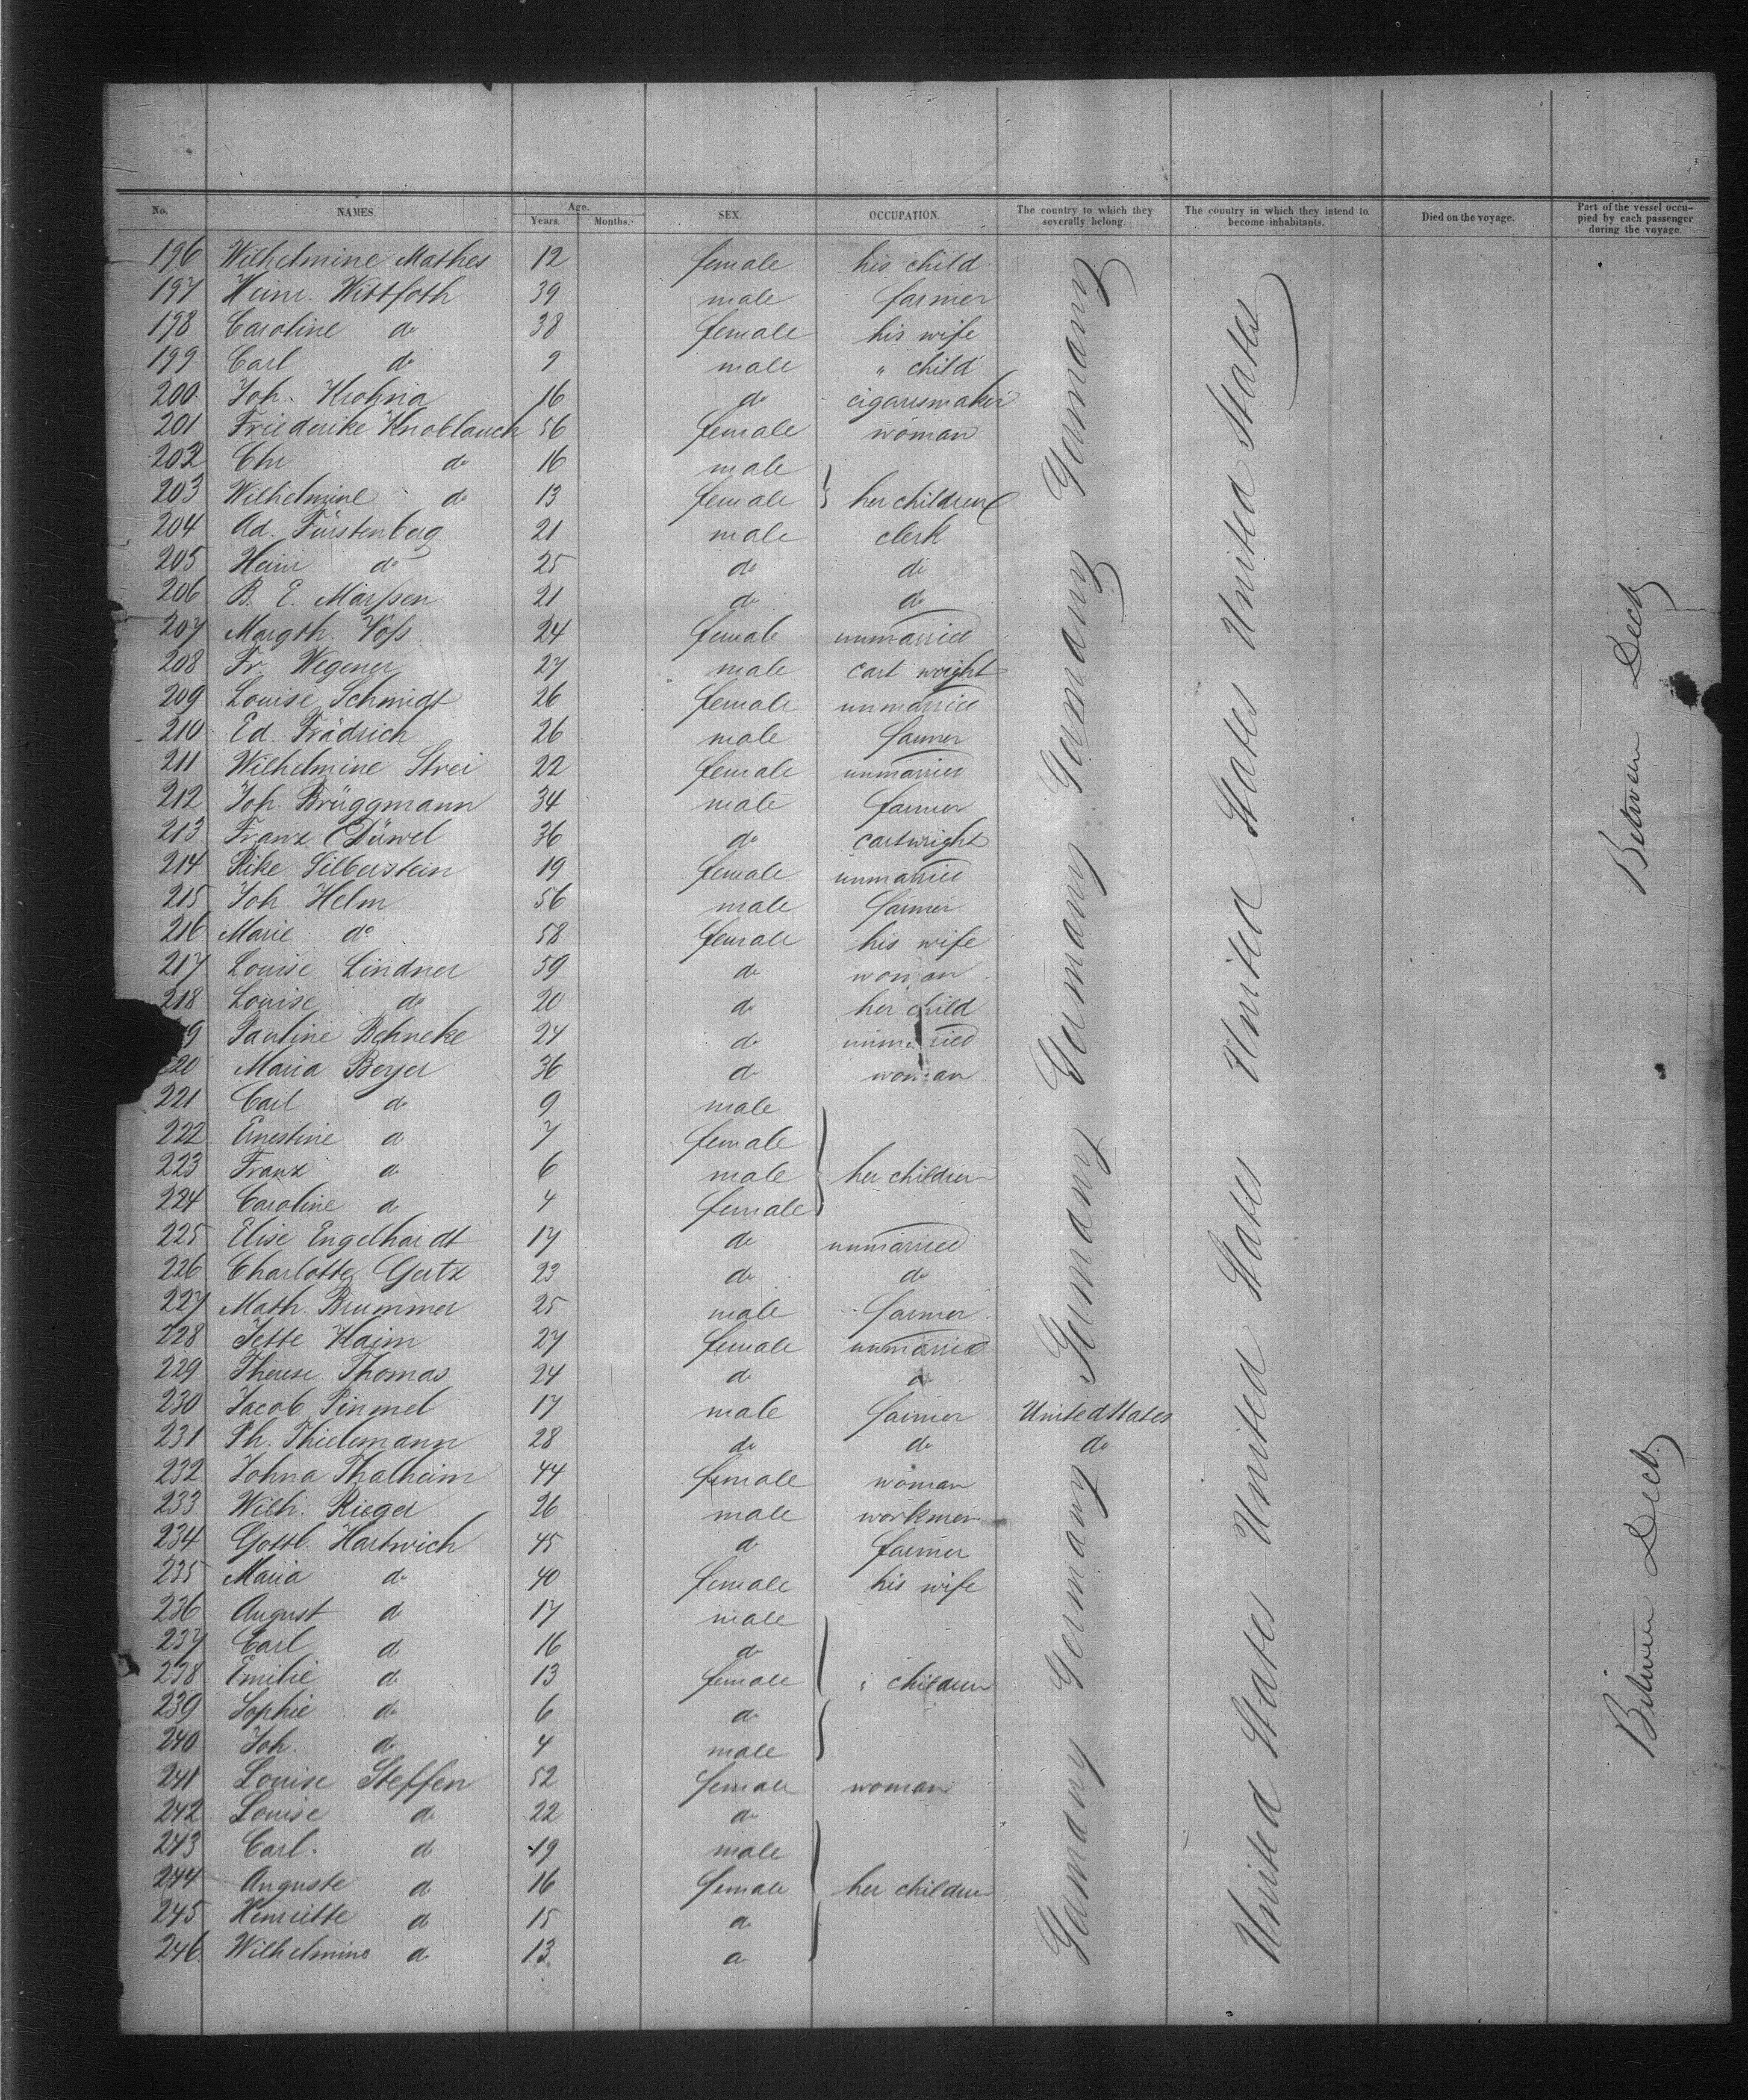 No. NAMES. Age. Years. Months. SEX. OCCUPATION. The country to which they severally belong. The country in which they intend to become inhabitants. Died on the voyage. Part of the vessel occupied by each passenger during the voyage.
196 Wilhelmine Mathes 12 female his child
197 Heinr. Wittfoth 39 male farmer
198 Caroline do 38 female his wife
199 Carl do 9 male " child
200 Joh. Krohna 16 do cigarsmaker
201 Friederike Knoblauch 56 female woman
202 Chr do 16 male
203 Wilhelmine do 13 female } her children
204 Ad. Fürstenberg 21 male clerk
205 Heinr do 25 do do
206 B. E. Marssen 21 do do
207 Margth. Voss 24 female unmarried
208 Fr. Wegener 27 male cart wright
209 Louise Schmidt 26 female unmarried
210 Ed. Frädrich 26 male farmer
211 Wilhelmine Strei 22 female unmarried
212 Joh. Brüggmann 34 male farmer
213 Franz Düwel 36 do cartwright
214 Rike Silberstein 19 female unmarried
215 Joh. Helm 56 male farmer
216 Marie do 58 female his wife
217 Louise Lindner 59 do woman
218 Louise do 20 do her child
9 Pauline Behneke 24 do unmarried
220 Maria Beyer 36 do woman
221 Carl do 9 male
222 Ernestine do 7 female
223 Franz do 6 male } her children
224 Caroline do 4 female
225 Elise Engelhardt 17 do unmarried
226 Charlotte Gertz 23 do do
227 Math. Brummer 25 male farmer
228 Jette Haim 27 female unmarried
229 Therese Thomas 24 do do
230 Jacob Pimmel 17 male farmer United States
231 Ph. Thielemann 28 do do do
232 Johna Thalheim 44 female woman
233 Wilh. Rieger 26 male workmen
234 Gottl. Hartwich 45 do farmer
235 Maria do 40 female his wife
236 August do 17 male
237 Carl do 16 do
238 Emilie do 13 female } " children
239 Sophie do 6 do
240 Joh. do 4 male
241 Louise Steffen 52 female woman
242 Louise do 22 do
243 Carl do 19 male
244 Auguste do 16 female } her children
245 Henriette do 15 do
246 Wilhelmine do 13 do
Germany Germany Germany Germany Germany Germany Germany
United States United States United States United States United States
Between Deck Between Deck